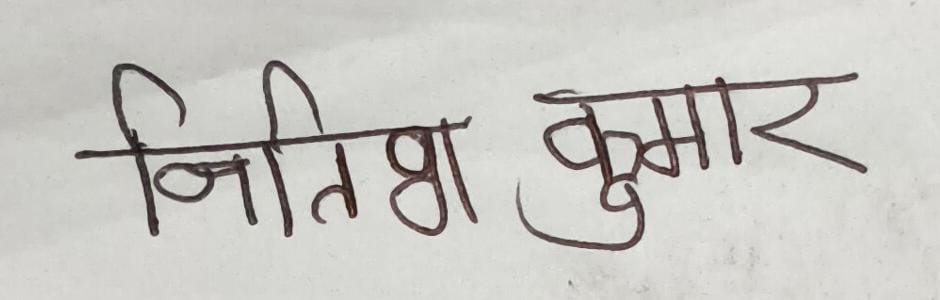 जितिश कुमार